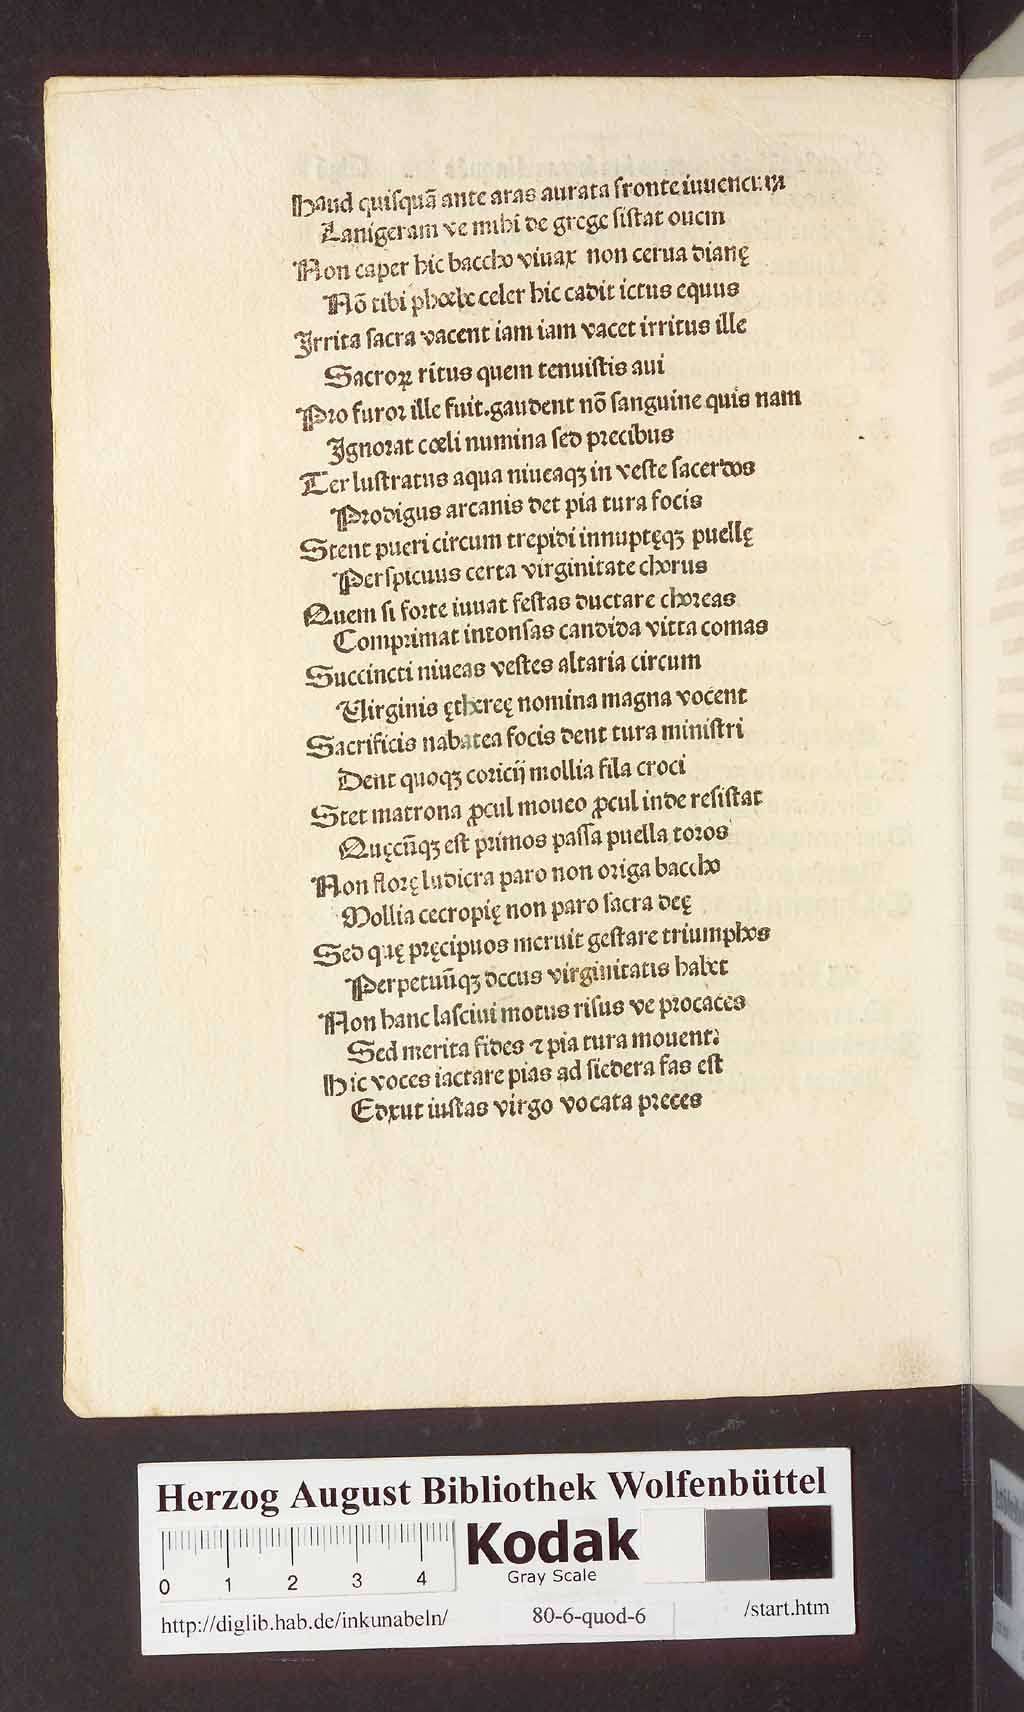 Haud quisquā ante aras aurata fronte iuuencum
Lanigeram ve mihi de grege sistat ouem
Non caper hic baccho viuax non cerua dianę
Nō tibi phœbe celer hic cadit ictus equus
Irrita sacra vacent iam iam vacet irritus ille
Sacroꝝ ritus quem tenuistis aui
Pro furor ille fuit.gaudent nō sanguine quis nam
Ignorat cœli numina sed precibus
Ter lustratus aqua niueaqꝫ in veste sacerdos
Prodigus arcanis det pia tura focis
Stent pueri circum trepidi innuptęqꝫ puellę
Perspicuus certa virginitate chorus
Quem si forte iuuat festas ductare choreas
Comprimat intonsas candida vitta comas
Succincti niueas vestes altaria circum
Uirginis ęthereę nomina magna vocent
Sacrificis nabatea focis dent tura ministri
Dent quoqꝫ coricij mollia fila croci
Stet matrona ꝓcul moueo ꝓcul inde resistat
Quęcūqꝫ est primos passa puella toros
Non florę ludicra paro non origa baccho
Mollia cecropię non paro sacra deę
Sed quę pręcipuos meruit gestare triumphos
Perpetuūqꝫ decus virginitatis habet
Non hanc lasciui motus risus ve procaces
Sed merita fides ⁊ pia tura mouent:
Hic voces iactare pias ad siedera fas est
Edxut iustas virgo vocata preces
Herzog August Bibliothek Wolfenbüttel
Kodak
Gray Scale
0 1 2 3 4
http://diglib.hab.de/inkunabeln/ 80-6-quod-6 /start.htm